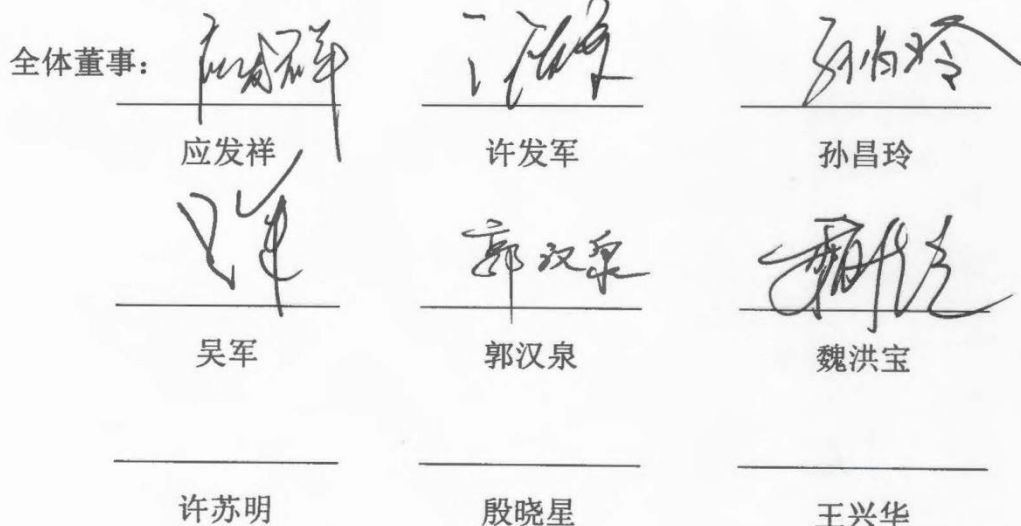 全体董事： 应发祥 许发军 孙昌玲
应发祥 许发军 孙昌玲
吴军 郭汉泉
吴军 郭汉泉 魏洪宝
许苏明 殷晓星 王兴华